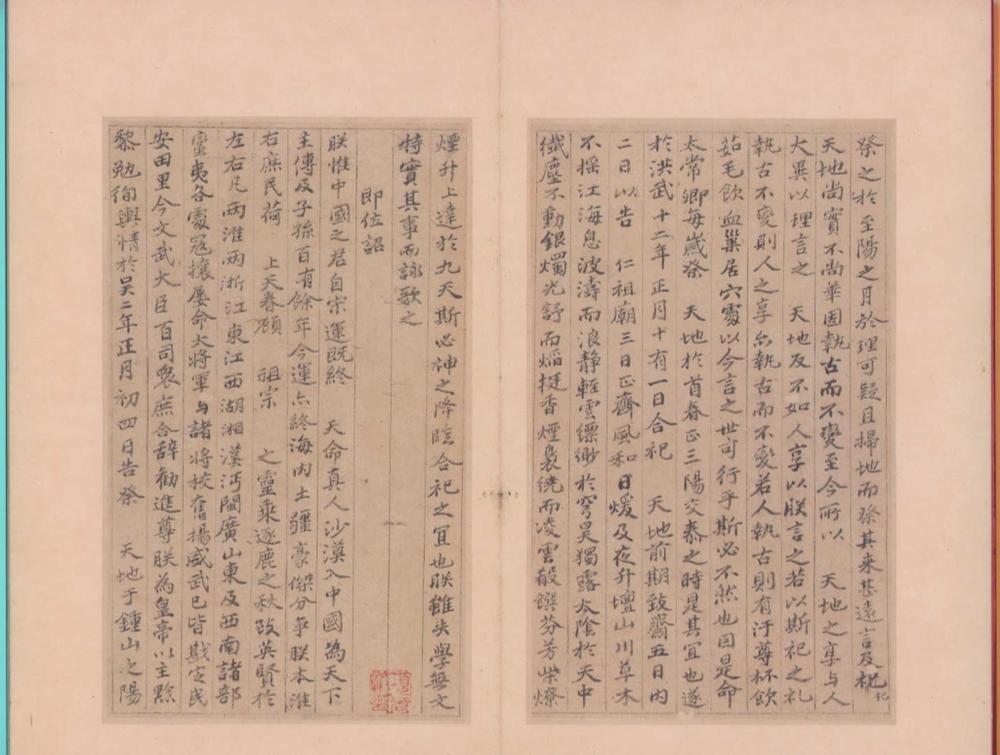 祭之於至陽之月於理可疑且掃地而祭其来甚遠言及祀祀
天地尚實不尚華固執古而不變至今所以　天地之享與人
大異以理言之　天地及不如人享以朕言之若以斯祀之礼
執古不變則人之享亦執古而不變若人執古則有汙尊杯飲
茹毛飲血巢居穴處以今言之世可行乎斯必不然也因是命
太常卿每歲祭　天地於首春正三陽交泰之時是其宜也遂
於洪武十二年正月十有一日合祀　天地前期致齋五日内
二日以告　仁祖廟三日正齊風和日煖及夜升壇山川草木
不揺江海息波濤而浪静輕雲縹緲於穹昊獨露太陰於天中
纖塵不動銀燭光舒而焰挺香煙裊繞而凌雲殽饌芬芳柴燎
煙升上達於九天斯必神之降臨合祀之宜也朕雖失學無文
特實其事而詠歌之
即位詔
朕惟中國之君自宋運既終　天命真人沙漠入中國為天下
主傳及子孫百有餘年今運亦終海内土疆豪傑分争朕本淮
右庶民荷　上天眷顧　祖宗　之靈乘逐鹿之秋致英賢於
左右凡兩淮兩浙江東江西湖湘漢沔閩廣山東及西南諸部
蠻夷各處寇攘屢命大將軍与諸將校奮揚威武已皆戡定民
安田里今文武大臣百司衆庶合辞勸進尊朕為皇帝以主黔
黎勉徇輿情於吴二年正月初四日告祭　天地于鍾山之陽